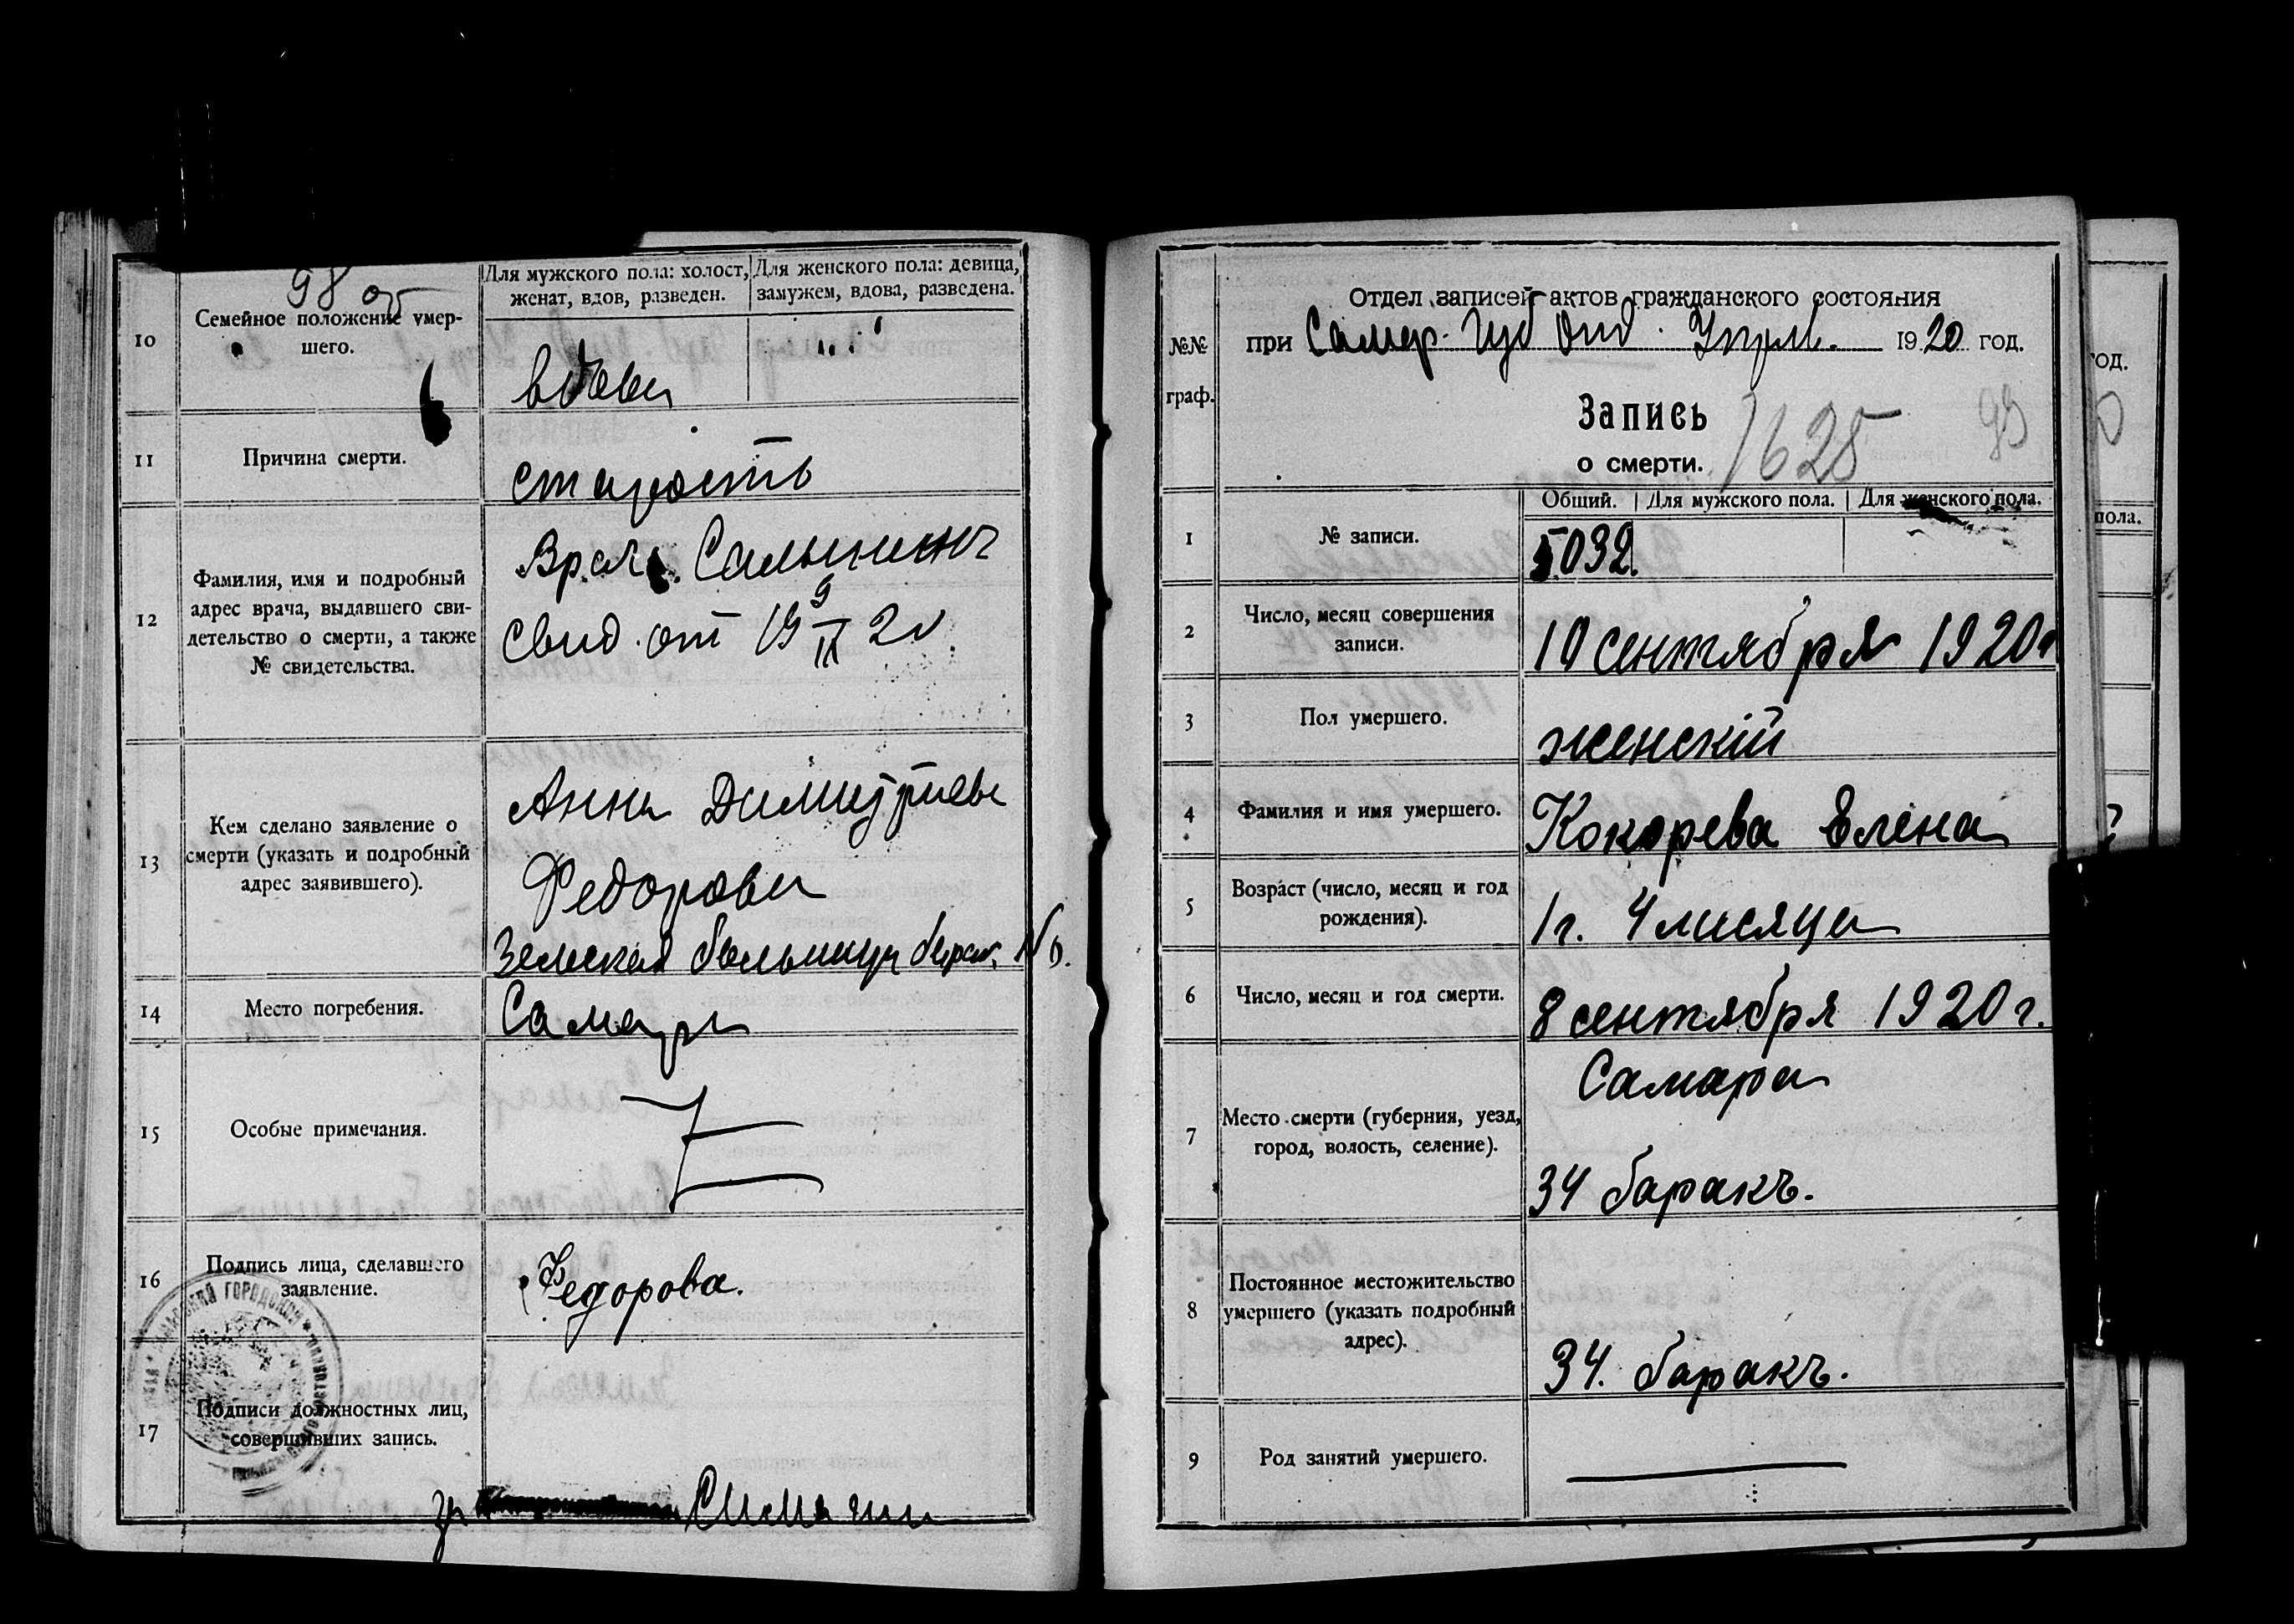 98 об
10
Семейное положение умер-
шего.
Для мужского пола: холост,
женат, вдов, разведен.
Для женского пола: девица,
замужем, вдова, разведена.
вдова
11
Причина смерти.
старость
12
Фамилия, имя и подробный
адрес врача, выдавшего сви-
детельство о смерти, а также
№ свидетельства.
Врач
свид. от 19 9/IX 20
13
Кем сделано заявление о
смерти (указать и подробный
адрес заявившего).
Анна Димитриева
Федорова
Земская больница барак
14
Место погребения.
Самара
15
Особые примечания.
16
Подпись лица, сделавшего
заявление.
Федорова.
17
Подписи должностных лиц,
совершивших запись.
№№
граф.
Отдел записей актов гражданского состояния
при Самар. Губ Отд. Управ. 1920 год.
Запись
о смерти.
1625
99
Общий. Для мужского пола. Для женского пола.
1
№ записи.
5032.
2
Число, месяц совершения
записи.
10 сентября 1920г
3
Пол умершего.
женскій
4
Фамилия и имя умершего.
Кокорева Елена
5
Возраст (число, месяц и год
рождения).
1 г. 4 месяца
6
Число, месяц и год смерти.
8 сентября 1920 г.
7
Место смерти (губерния, уезд,
город, волость, селение).
Самара
34 баракъ.
8
Постоянное местожительство
умершего (указать подробный
адрес).
34. баракъ.
9
Род занятий умершего.
од.
пола.